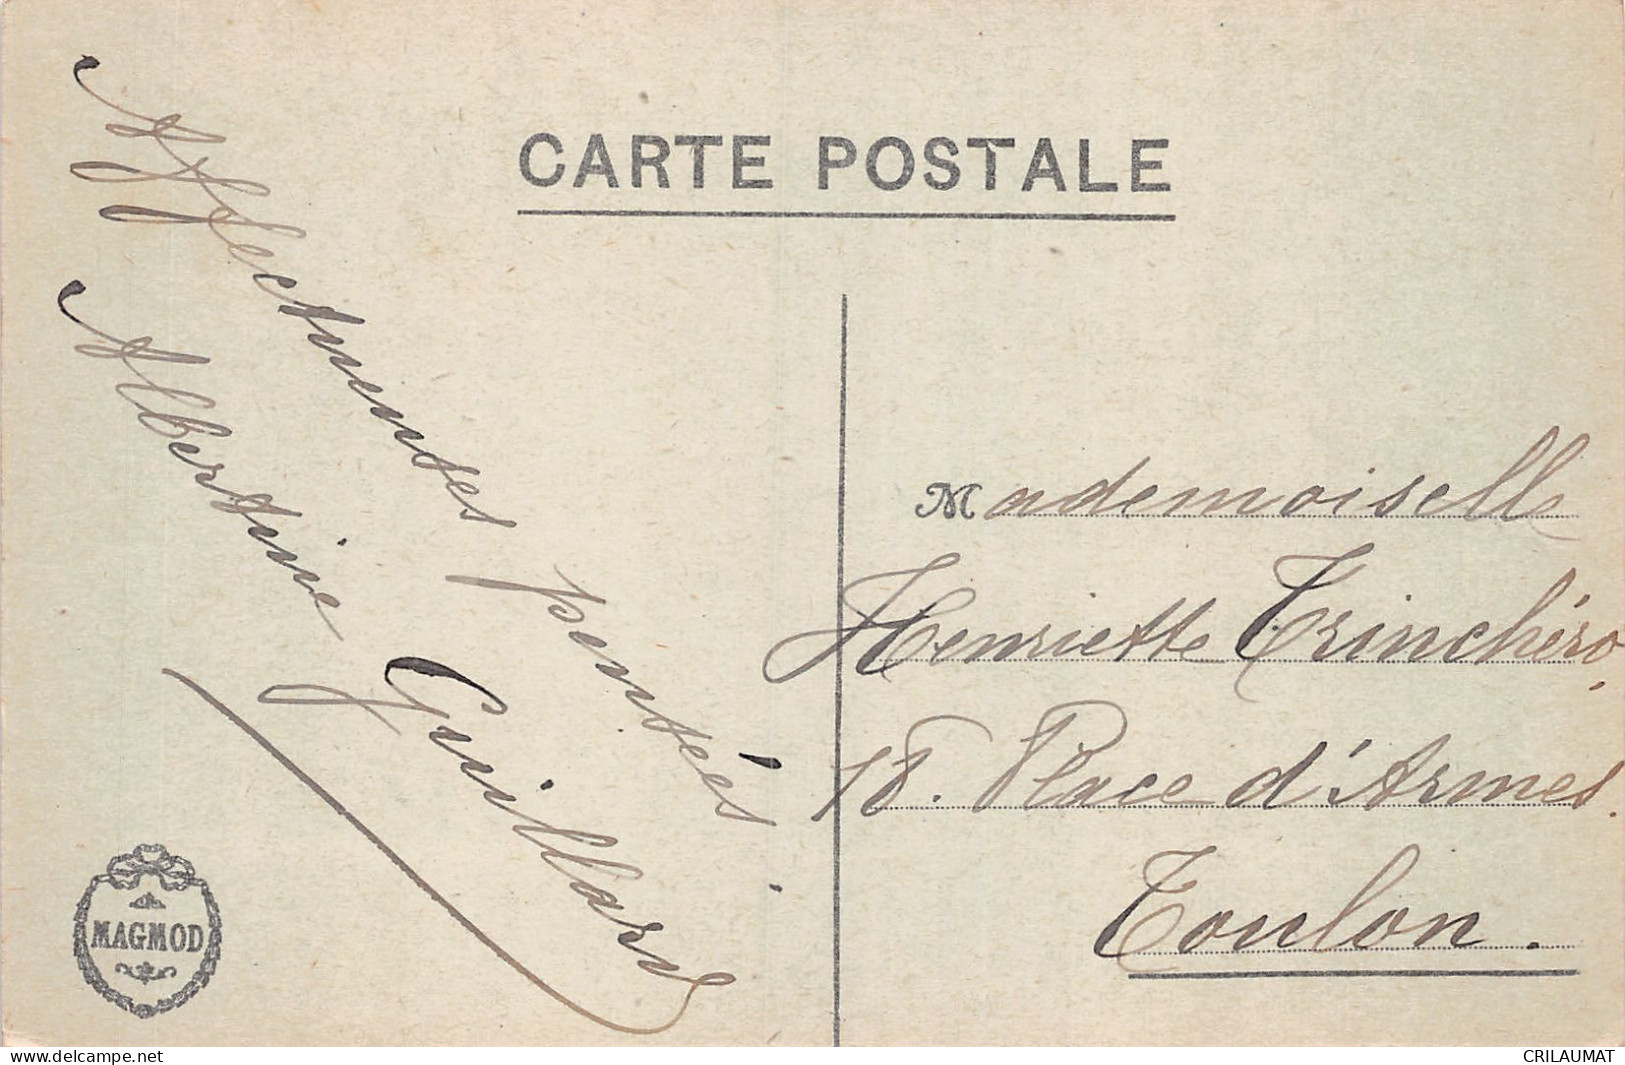 CARTE POSTALE
Affectueuses pensées.
Albertine Guillard
Mademoiselle
Henriette Trinchéro.
18. Place d'Armes.
Toulon.
MAGMOD
www.delcampe.net
CRILAUMAT